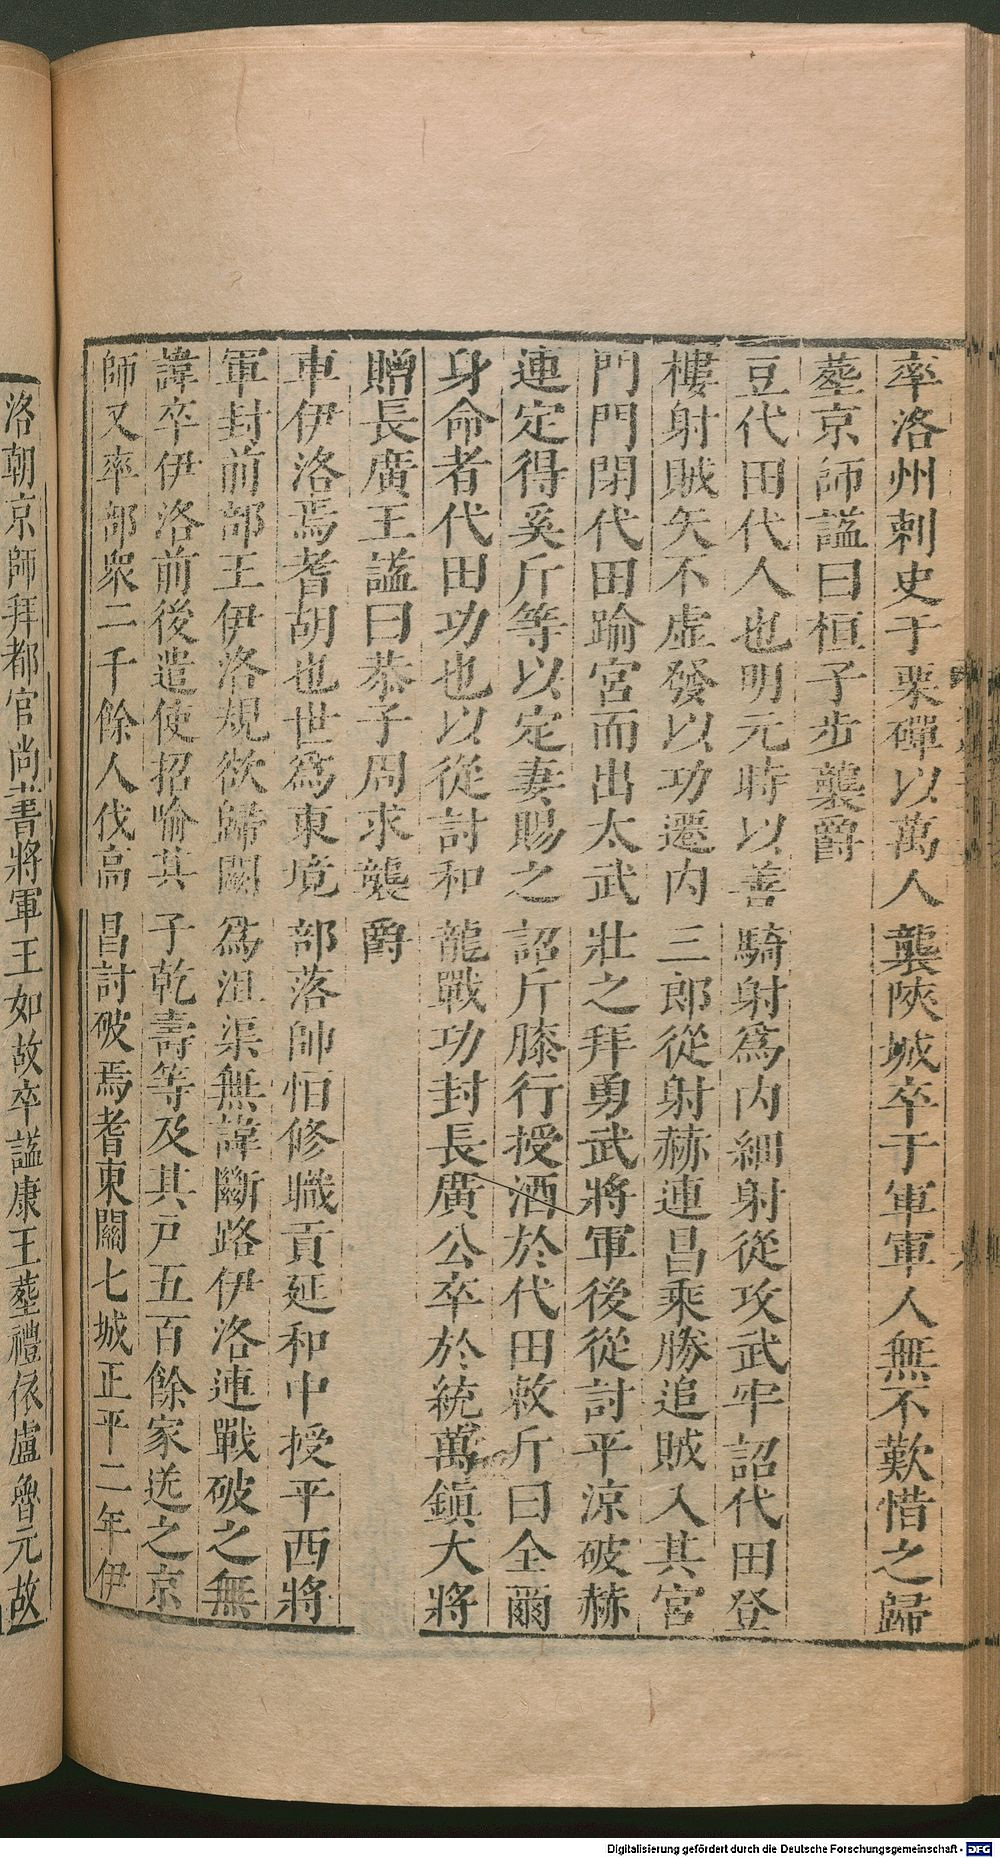 率洛州刺史于栗磾以萬人襲陝城卒于軍軍人無不歎惜之歸
塟京師謚曰桓子步襲爵
豆代田代人也明元時以善騎射爲内細射從攻武牢詔代田登
樓射賊矢不虛發以功遷内三郎從射赫連昌乘勝追賊入其宮
門門閉代田踰宮而出太武壯之拜勇武將軍後從討平涼破赫
連定得奚斤等以定妻賜之詔斤膝行授酒於代田敕斤曰全爾
身命者代田功也以從討和龍戰功封長廣公卒於統萬鎭大將
贈長廣王謚曰恭子周求襲爵
車伊洛焉耆胡也世爲東境部落帥恒修職貢延和中授平西將
軍封前部王伊洛規欲歸闕爲沮渠無諱斷路伊洛連戰破之無
諱卒伊洛前後遣使招喻其子乾壽等及其户五百餘家送之京
師又率部衆二千餘人伐高昌討破焉耆東關七城正平二年伊
洛朝京師拜都官尚書將軍王如故卒謚康王塟禮依盧魯元故
Digitalisierung gefördert durch die Deutsche Forschungsgemeinschaft - DFG